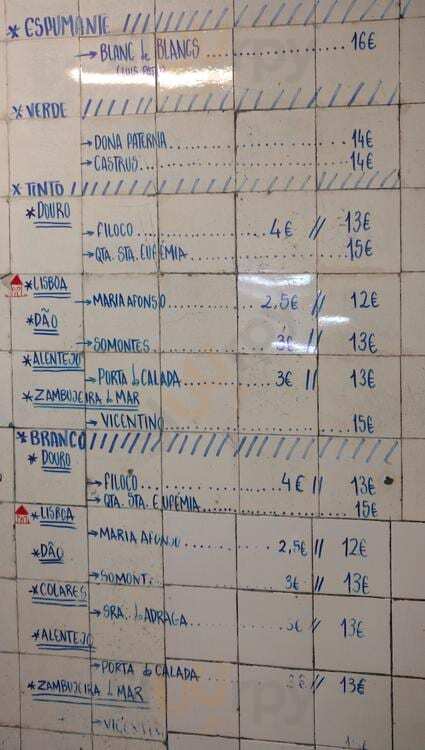 * ESPUMANTE
→ BLANC de BLANCS .............. 16€
* VERDE
→ DONA PATERNA .............. 14€
→ CASTRUS .............. 14€
* TINTO
* DOURO
→ FILOCO .............. 4€ // 13€
→ QTA. STA. EUFÉMIA .............. 15€
* LISBOA
→ MARIA AFONSO .............. 2,5€ // 12€
* DÃO
→ SOMONTES .............. 3€ // 13€
* ALENTEJO
→ PORTA da CALADA .............. 3€ // 13€
* ZAMBUJEIRA do MAR
→ VICENTINO .............. 15€
* BRANCO
* DOURO
→ FILOCO .............. 4€ // 13€
→ QTA. STA. EUFÉMIA .............. 15€
* LISBOA
→ MARIA AFONSO .............. 2,5€ // 12€
* DÃO
→ SOMONT .............. 3€ // 13€
* COLARES
→ SRA. da ADRAGA .............. // 13€
* ALENTEJO
→ PORTA da CALADA .............. // 13€
* ZAMBUJEIRA do MAR
→ VICENTIN